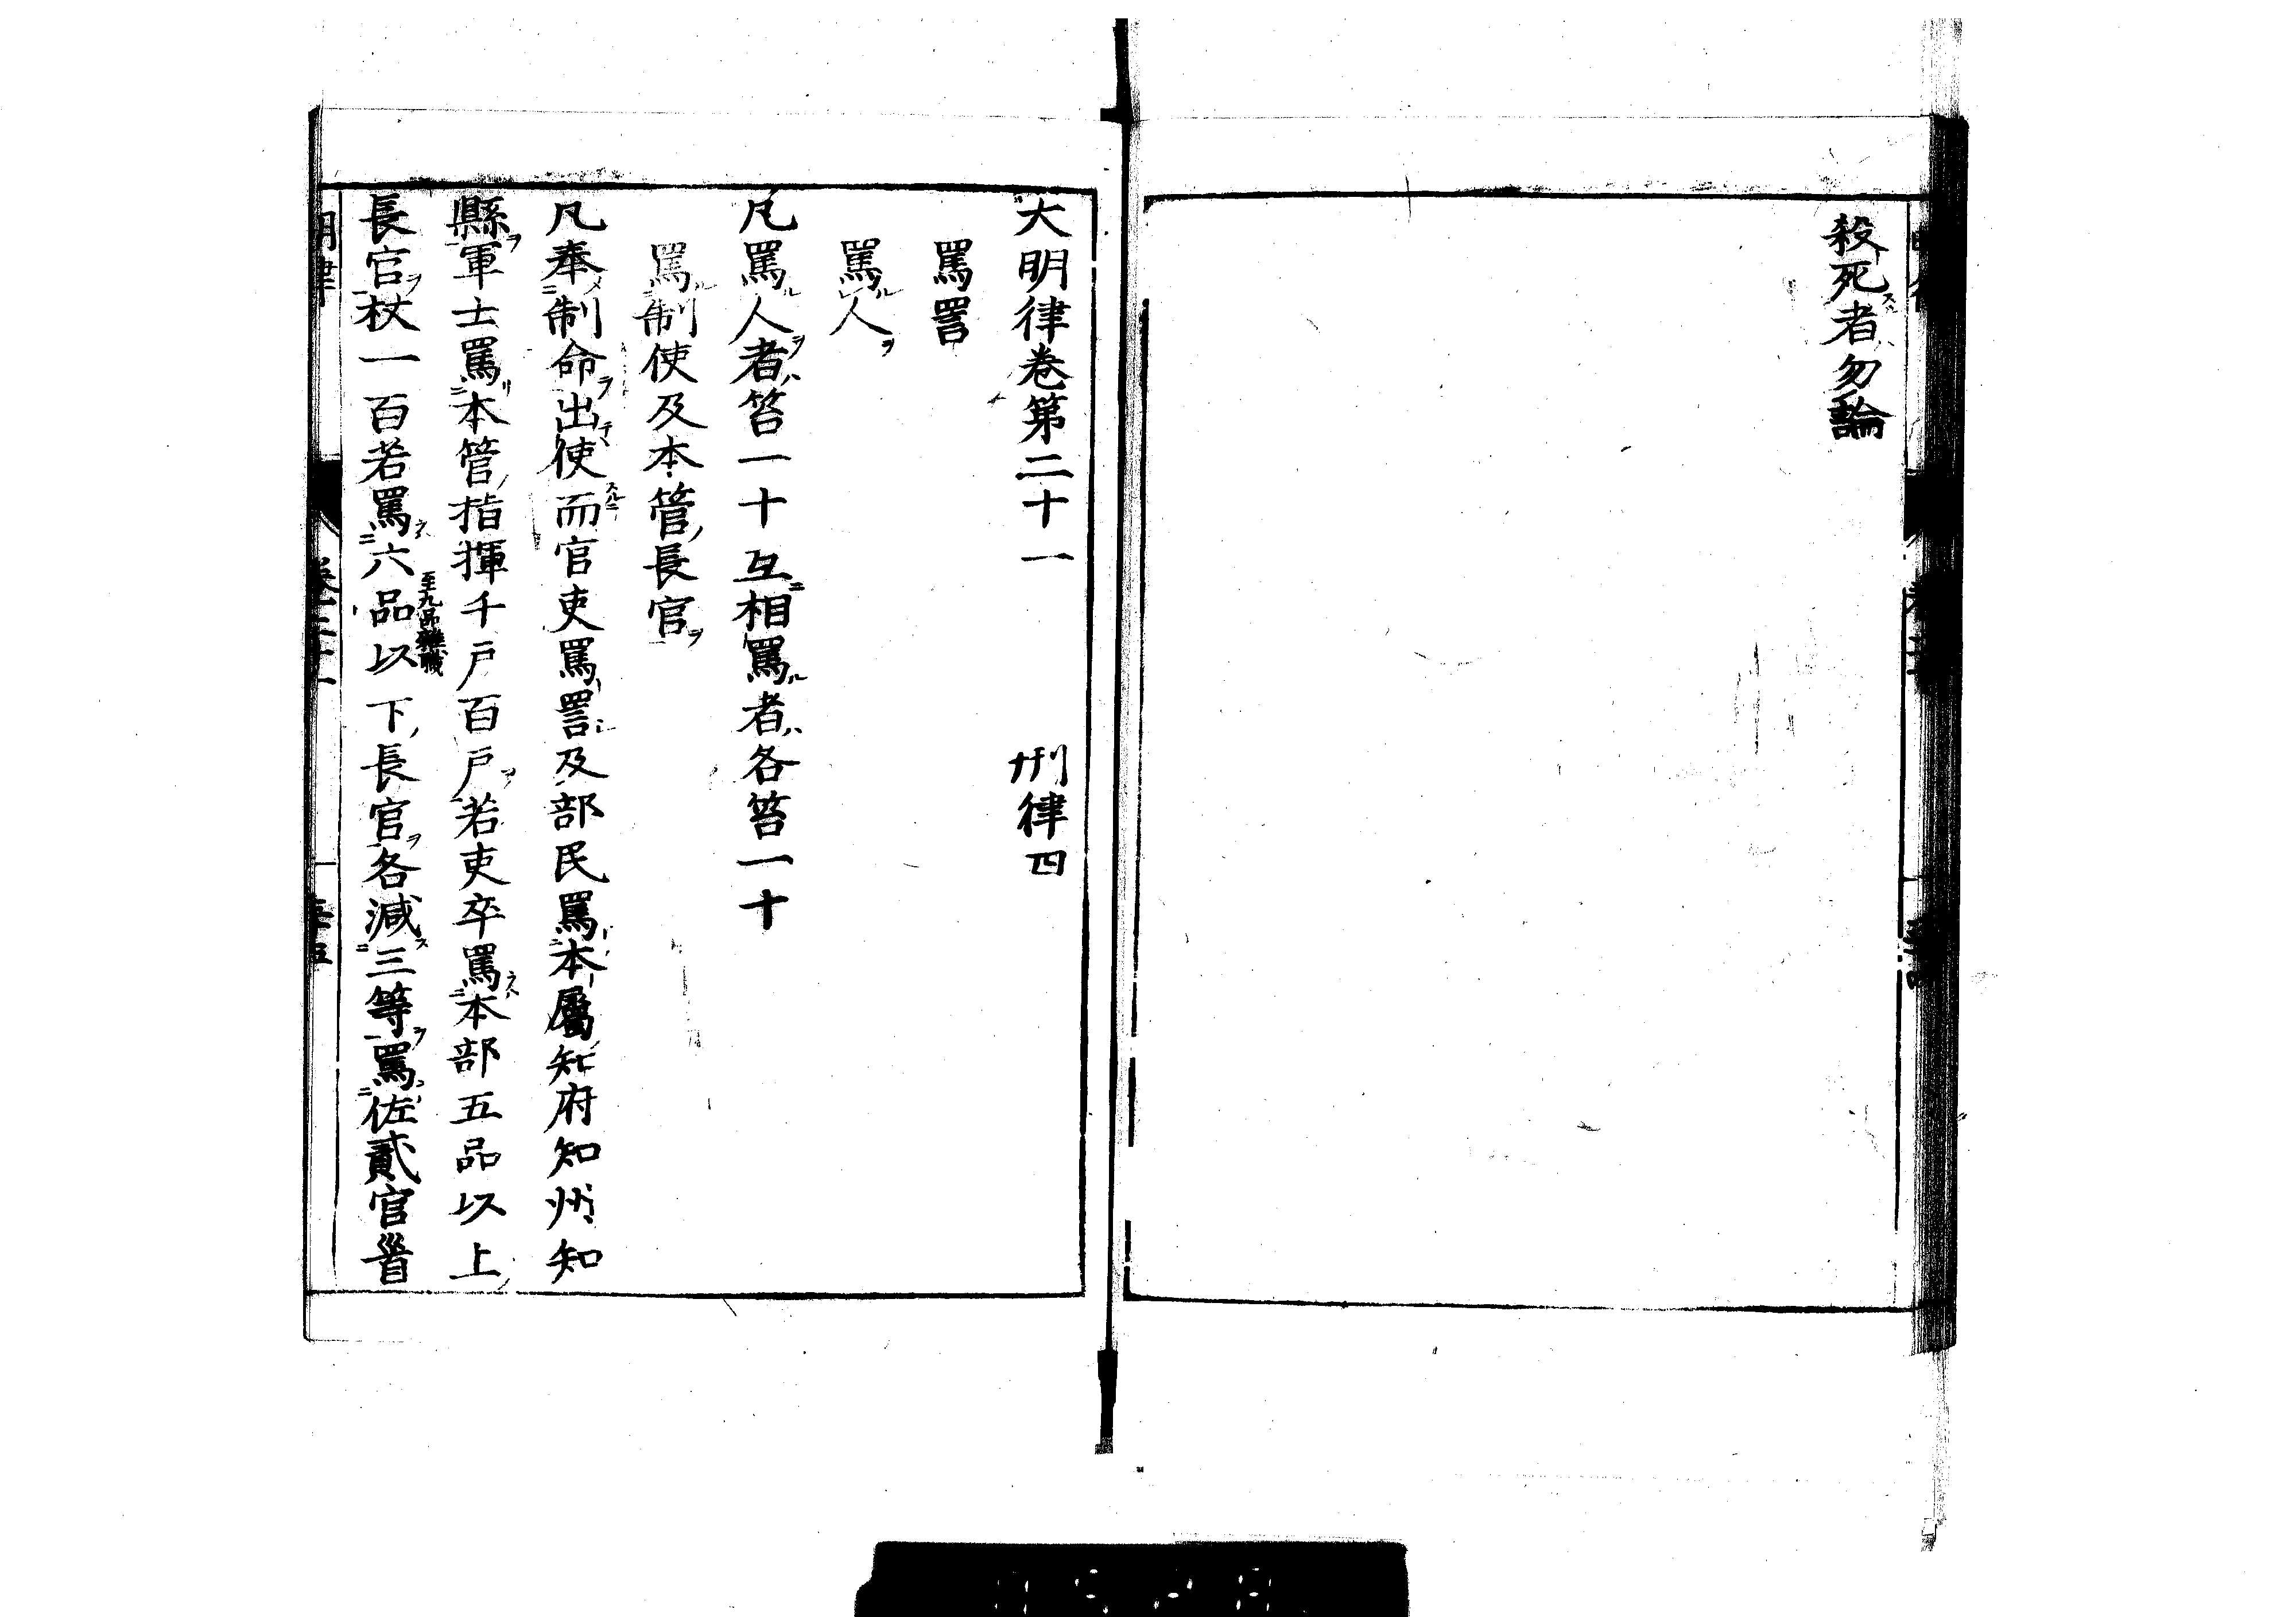 殺死者勿論
大明律卷第二十一　刑律四
罵詈
罵人
凡罵人者笞一十互相罵者各笞一十
罵制使及本管長官
凡奉制命出使而官吏罵詈及部民罵本屬知府知州知
縣軍士罵本管指揮千戶百戶若吏卒罵本部五品以上
長官杖一百若罵六品以下長官各減三等罵佐貳官首
至九品雜職